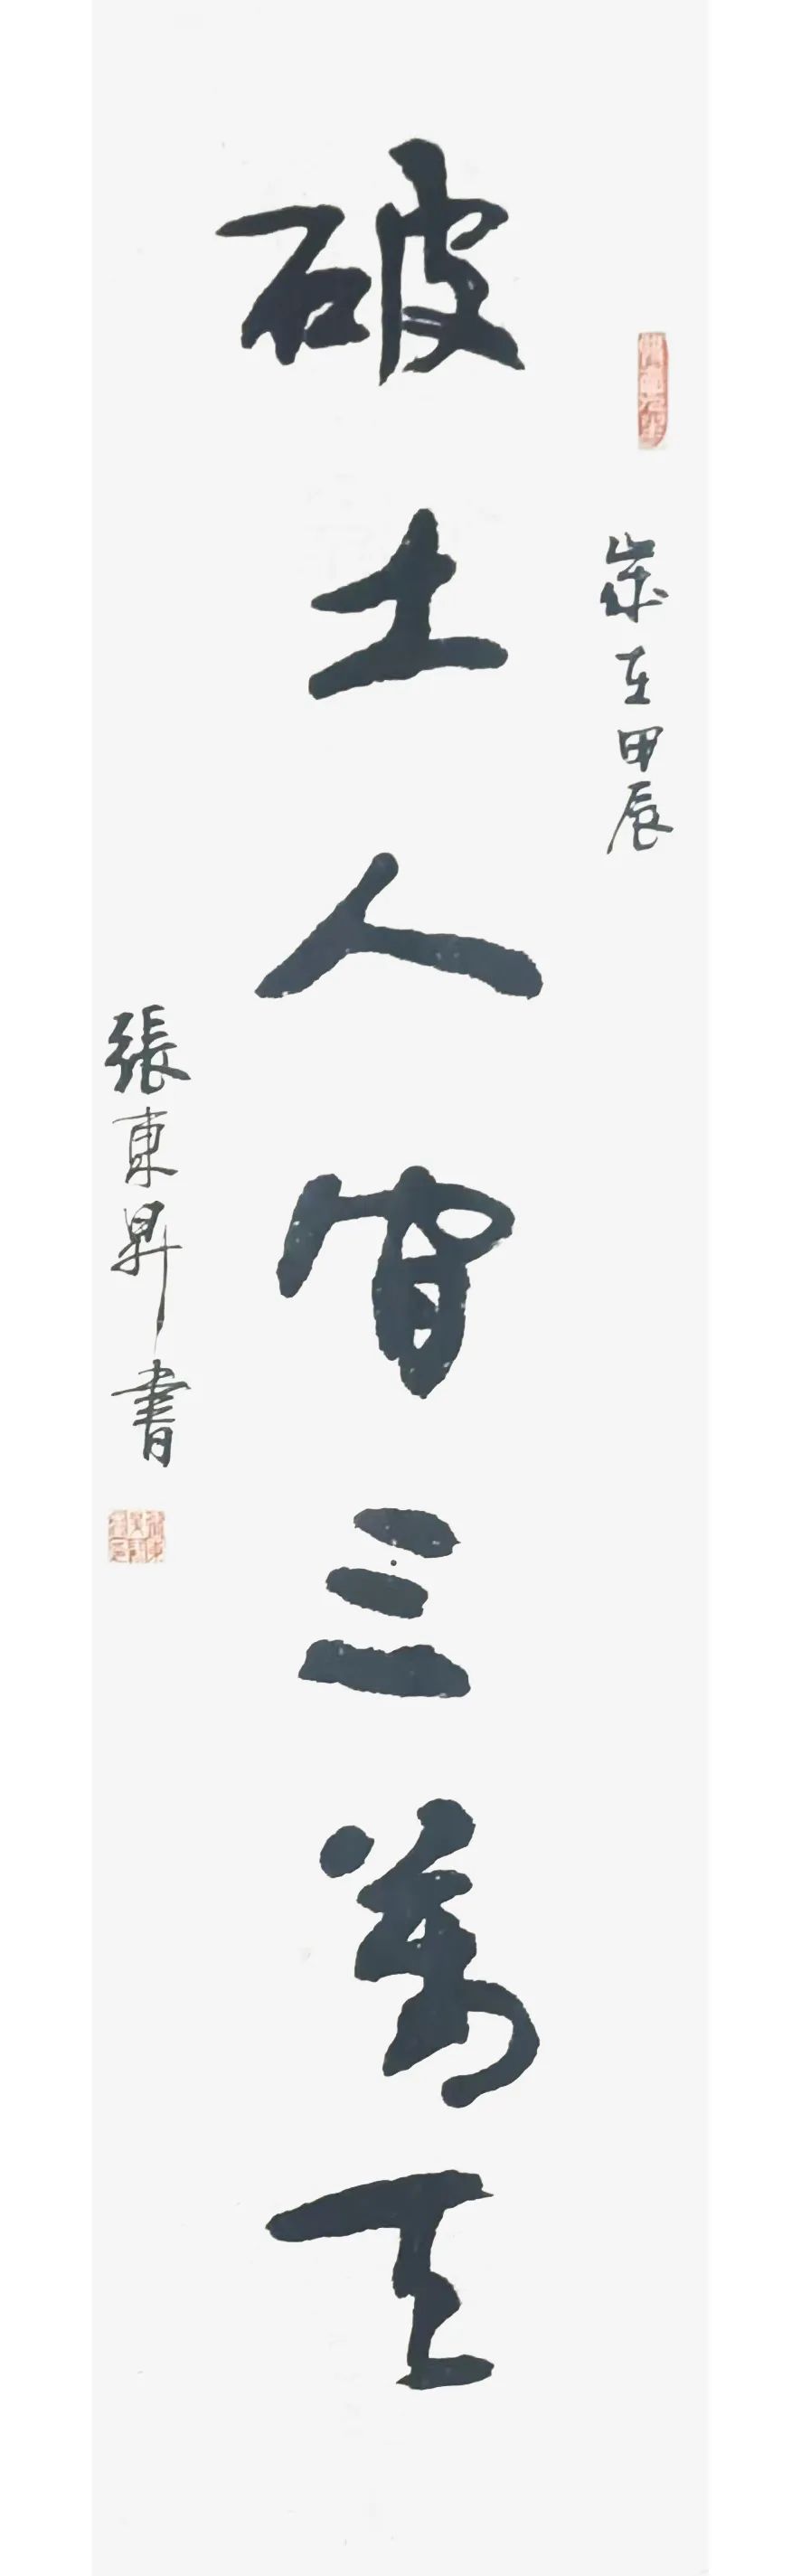 歲在甲辰
破土人間三萬天
張東昇書